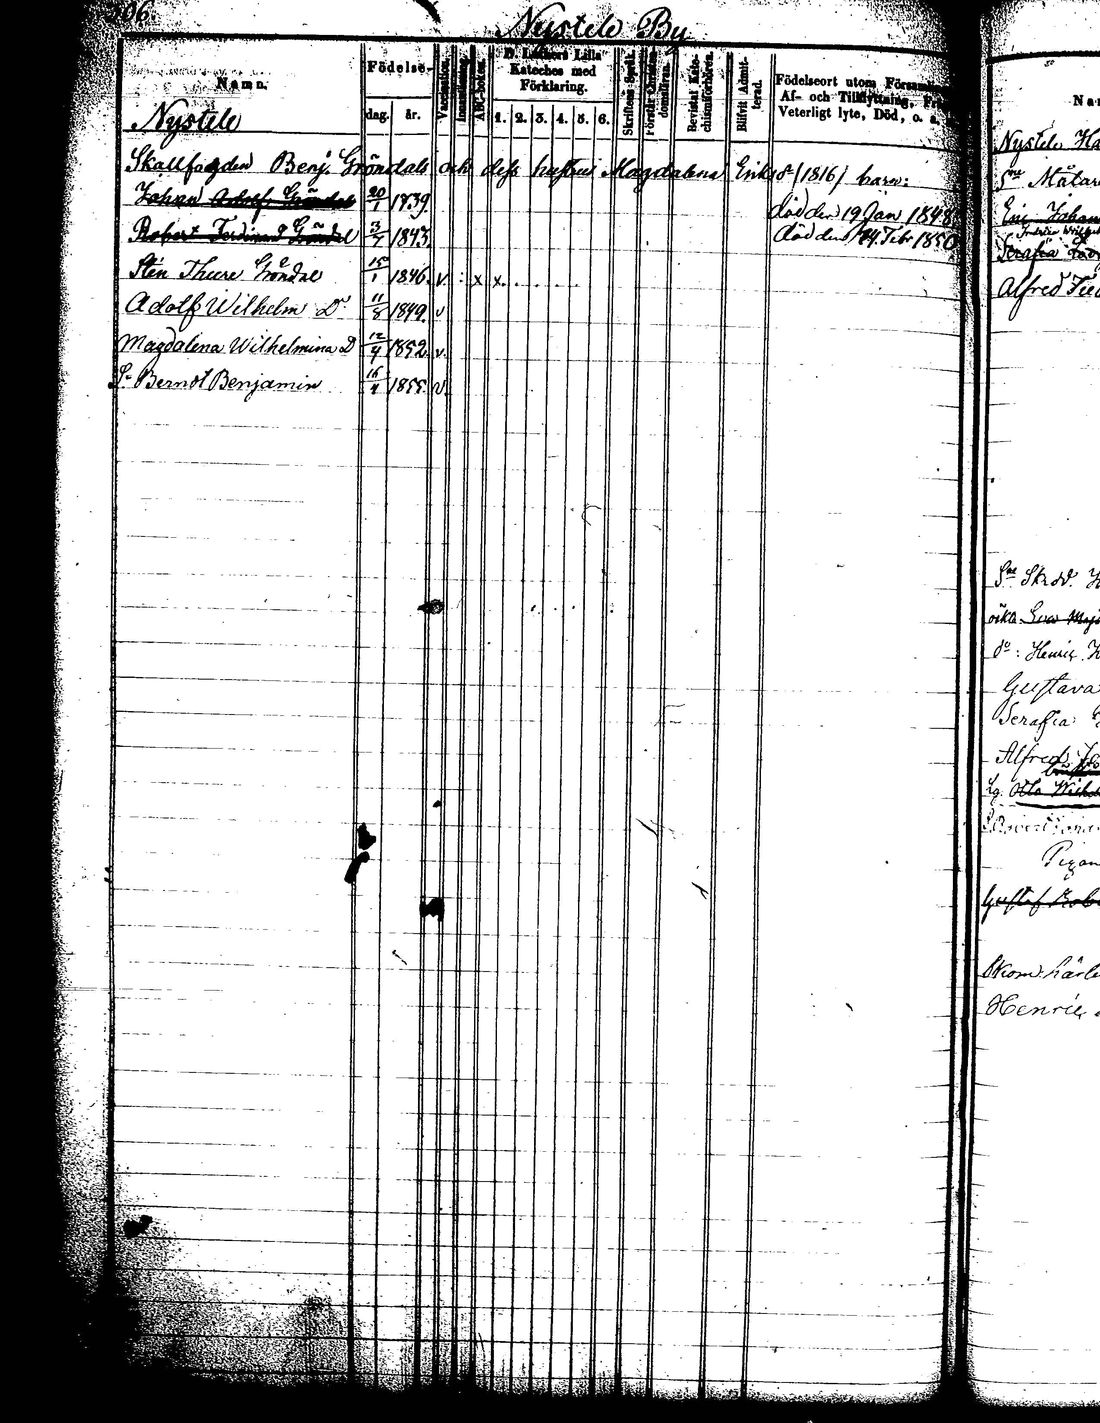 206.
Nystele By
Namn.
Födelse-
dag.
år.
Vaccination.
ABC-boken.
D. Luthers Lilla
Kateches med
Förklaring.
1. 2. 3. 4. 5. 6.
Skriftens Språk.
Bevistat Kate-
chismiförhören.
Blifvit Admit-
terad.
Födelseort utom Församlin
Af- och Tillflyttning, Fr
Veterligt lyte, Död, o. a.
Nystele
Skallfogden Benj. Gröndals och dess hustrus Magdalena Eriksdr (1816) barn:
Johan Adolf Gröndal 20/1 1839. död den 19 Jan 1848
Robert Ferdinand Gröndal 3/7 1843. död den 24 Febr 1850
Sten Thure Gröndal 15/1 1846. v. x x
Adolf Wilhelm Do 11/8 1849. v
Magdalena Wilhelmina D 12/9 1852. v.
S. Berndt Benjamin 16/4 1855. v.
Na
Nystele
Måtar
Johan
Serafia
Alfred
Henric
Gustava
Serafia
Alfred
Otto Wilh
Gustaf Rob
Henric